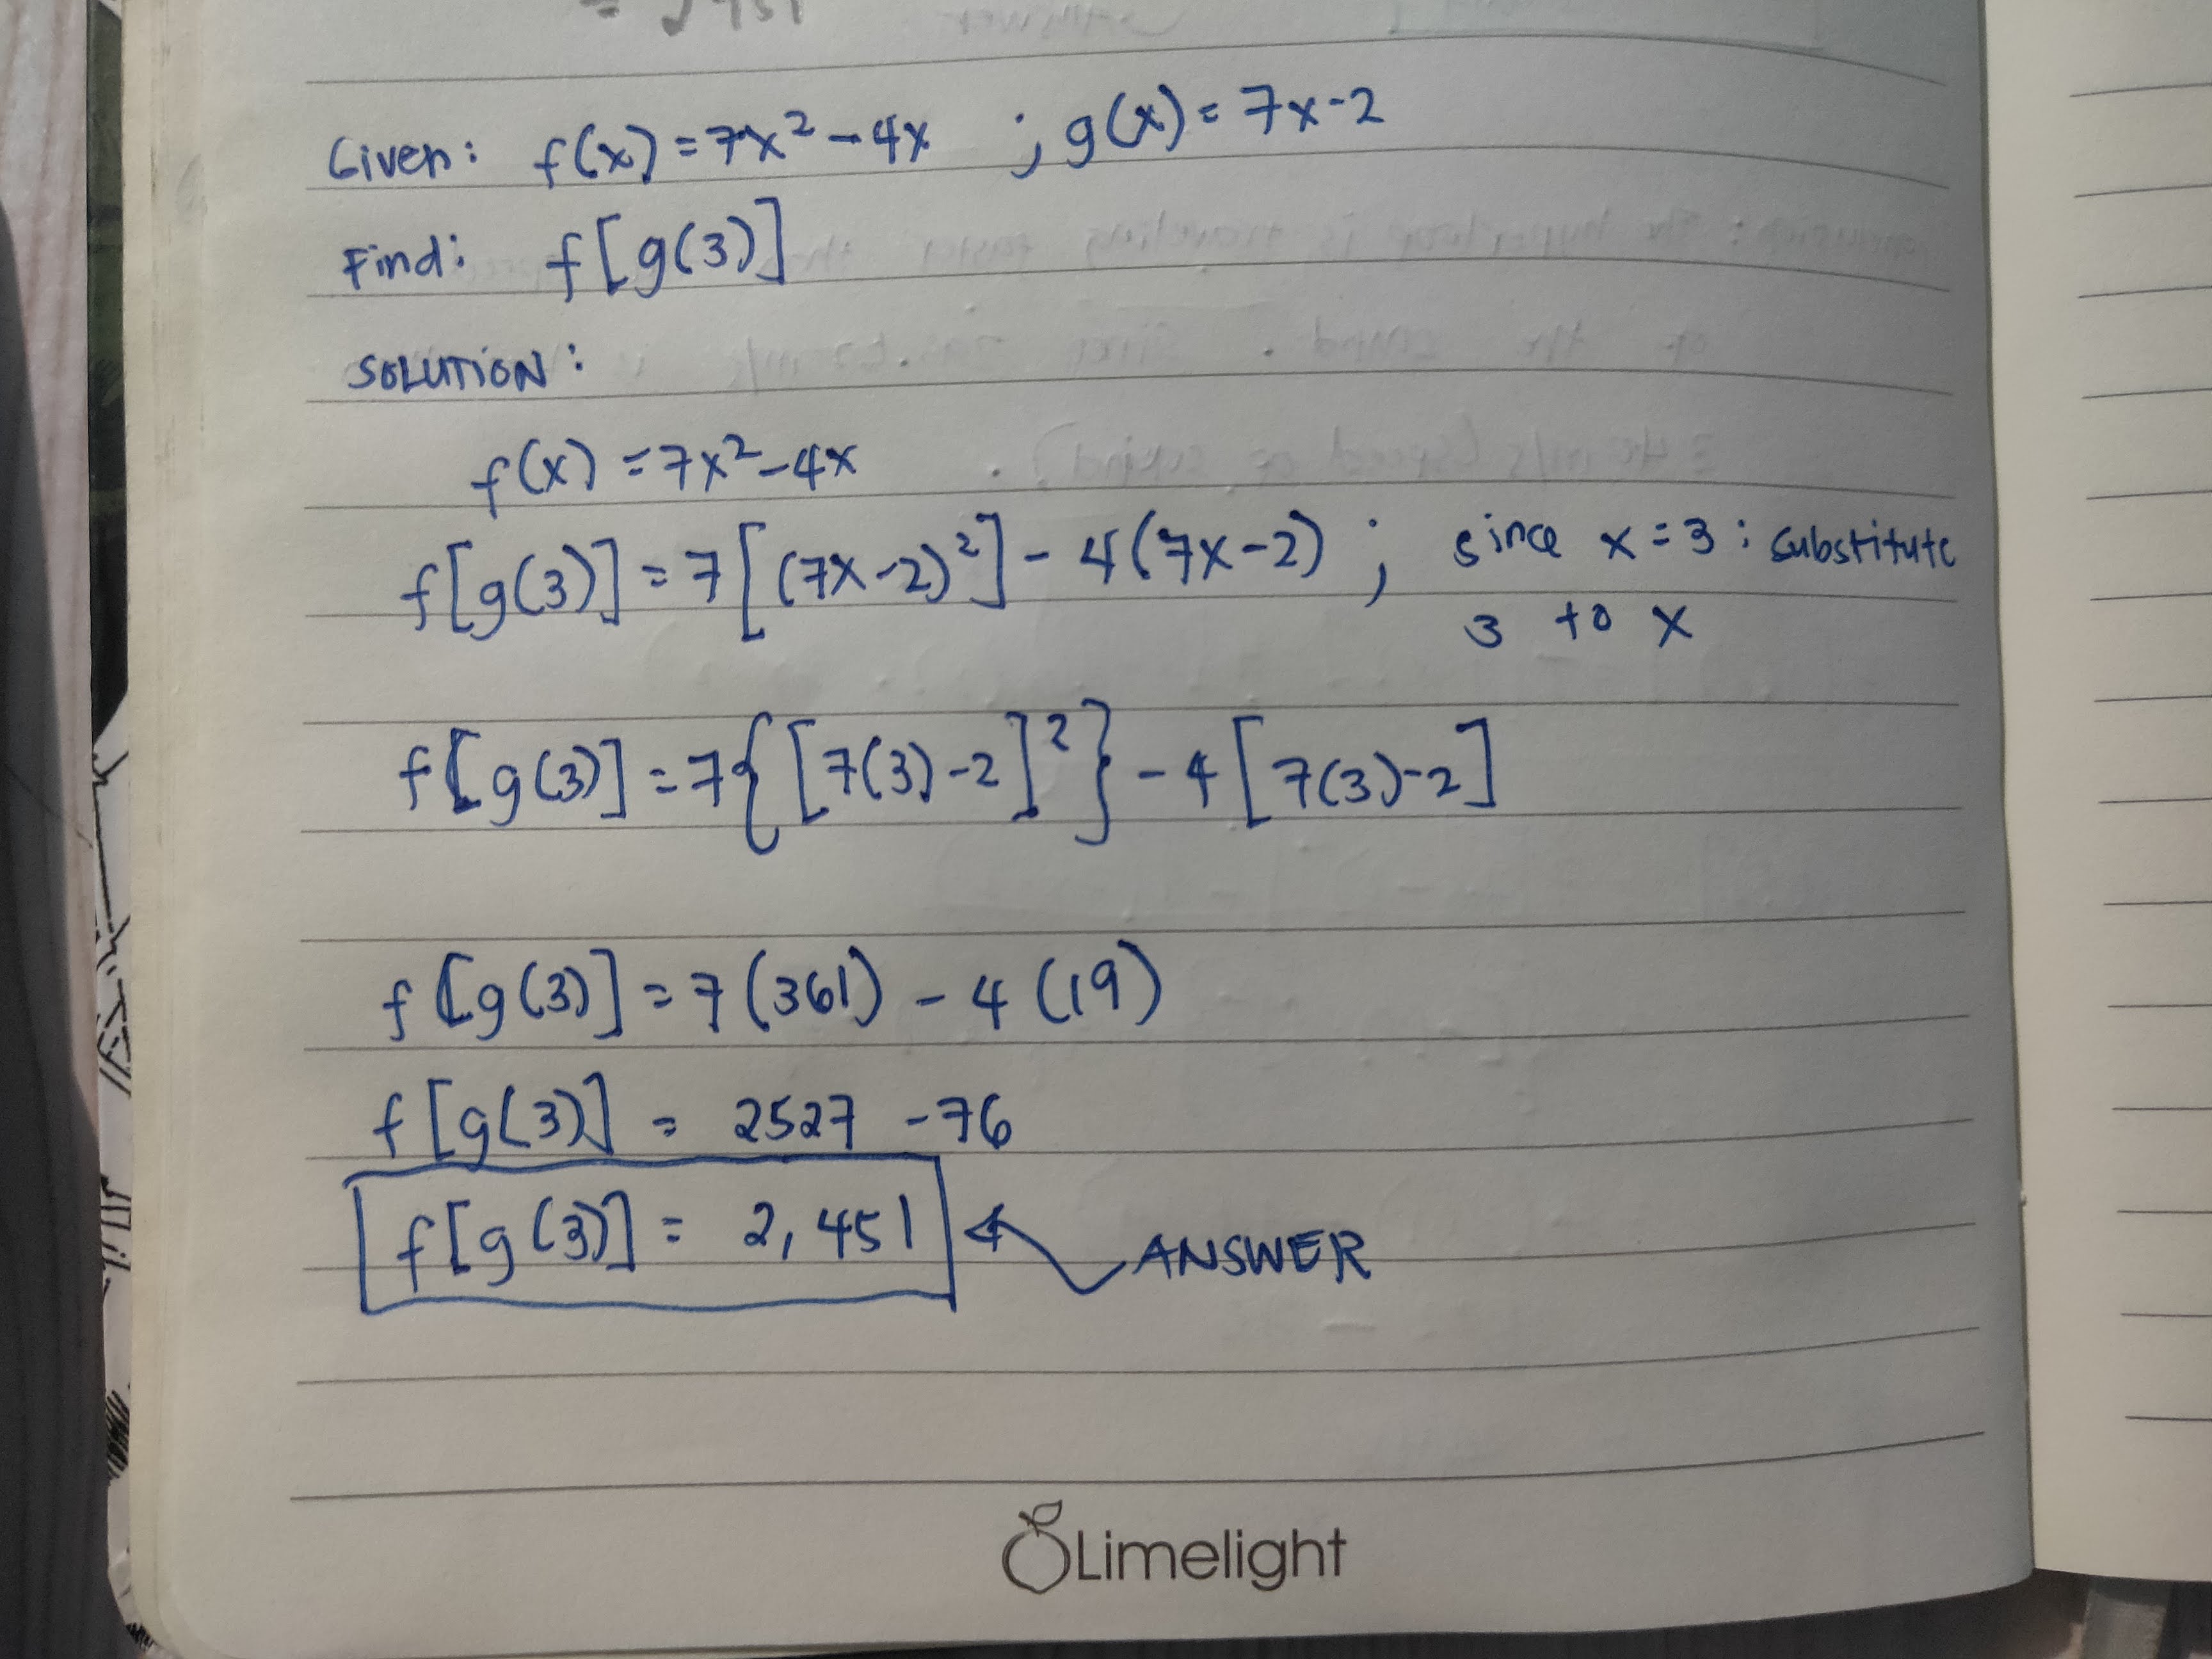 Given: f(x) = 7x² - 4x ; g(x) = 7x-2
Find: f[g(3)]
SOLUTION:
f(x) = 7x² - 4x
f[g(3)] = 7[(7x-2)²] - 4(7x-2) ; since x = 3 : substitute
3 to x
f[g(3)] = 7{[7(3)-2]²} - 4[7(3)-2]
f[g(3)] = 7(361) - 4(19)
f[g(3)] = 2527 - 76
f[g(3)] = 2,451 ANSWER
Limelight